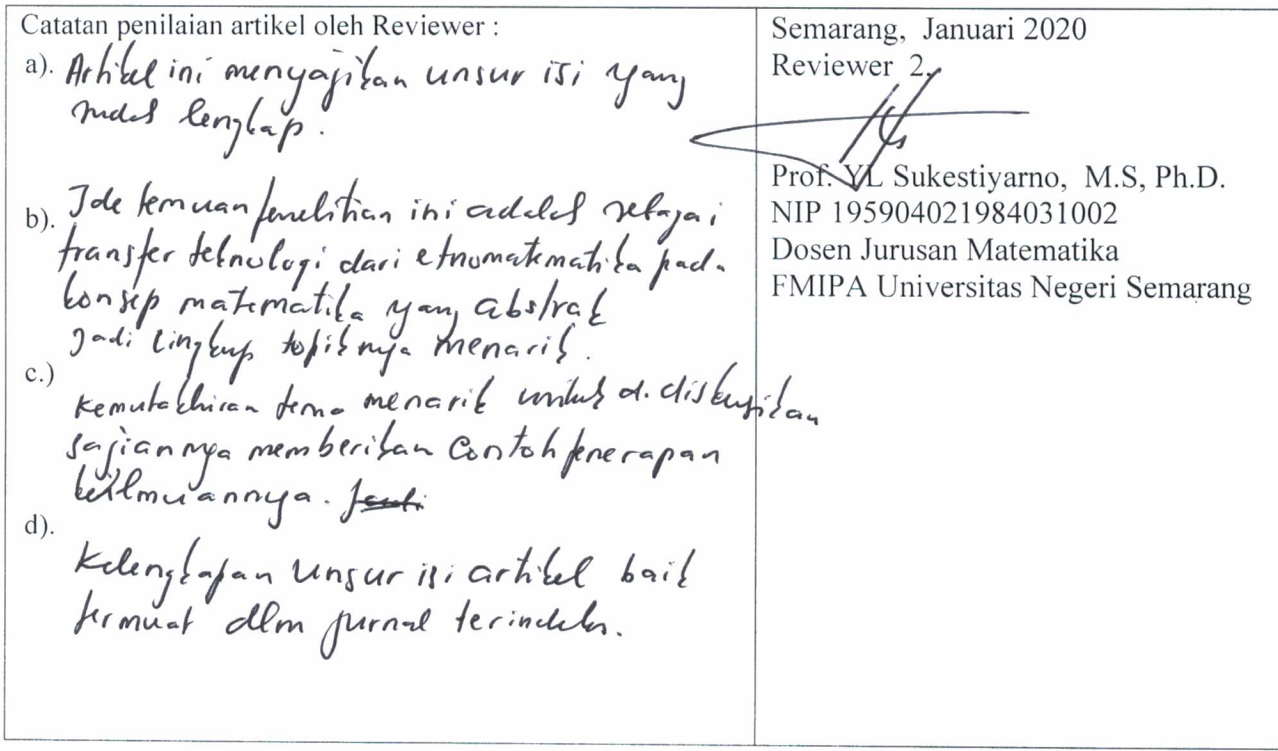 Catatan penilaian artikel oleh Reviewer :
a). Artikel ini menyajikan unsur isi yang
sudah lengkap.
b). Ide temuan penelitian ini adalah sebagai
transfer teknologi dari etnomatematika pada
konsep matematika yang abstrak
Jadi lingkup topiknya menarik.
c.)
Kemutakhiran tema menarik untuk di diskusikan
sajiannya memberikan contoh penerapan
keilmuannya.
d).
Kelengkapan unsur isi artikel baik
termuat dlm jurnal terindeks.
Semarang, Januari 2020
Reviewer 2
Prof. YL Sukestiyarno, M.S, Ph.D.
NIP 195904021984031002
Dosen Jurusan Matematika
FMIPA Universitas Negeri Semarang